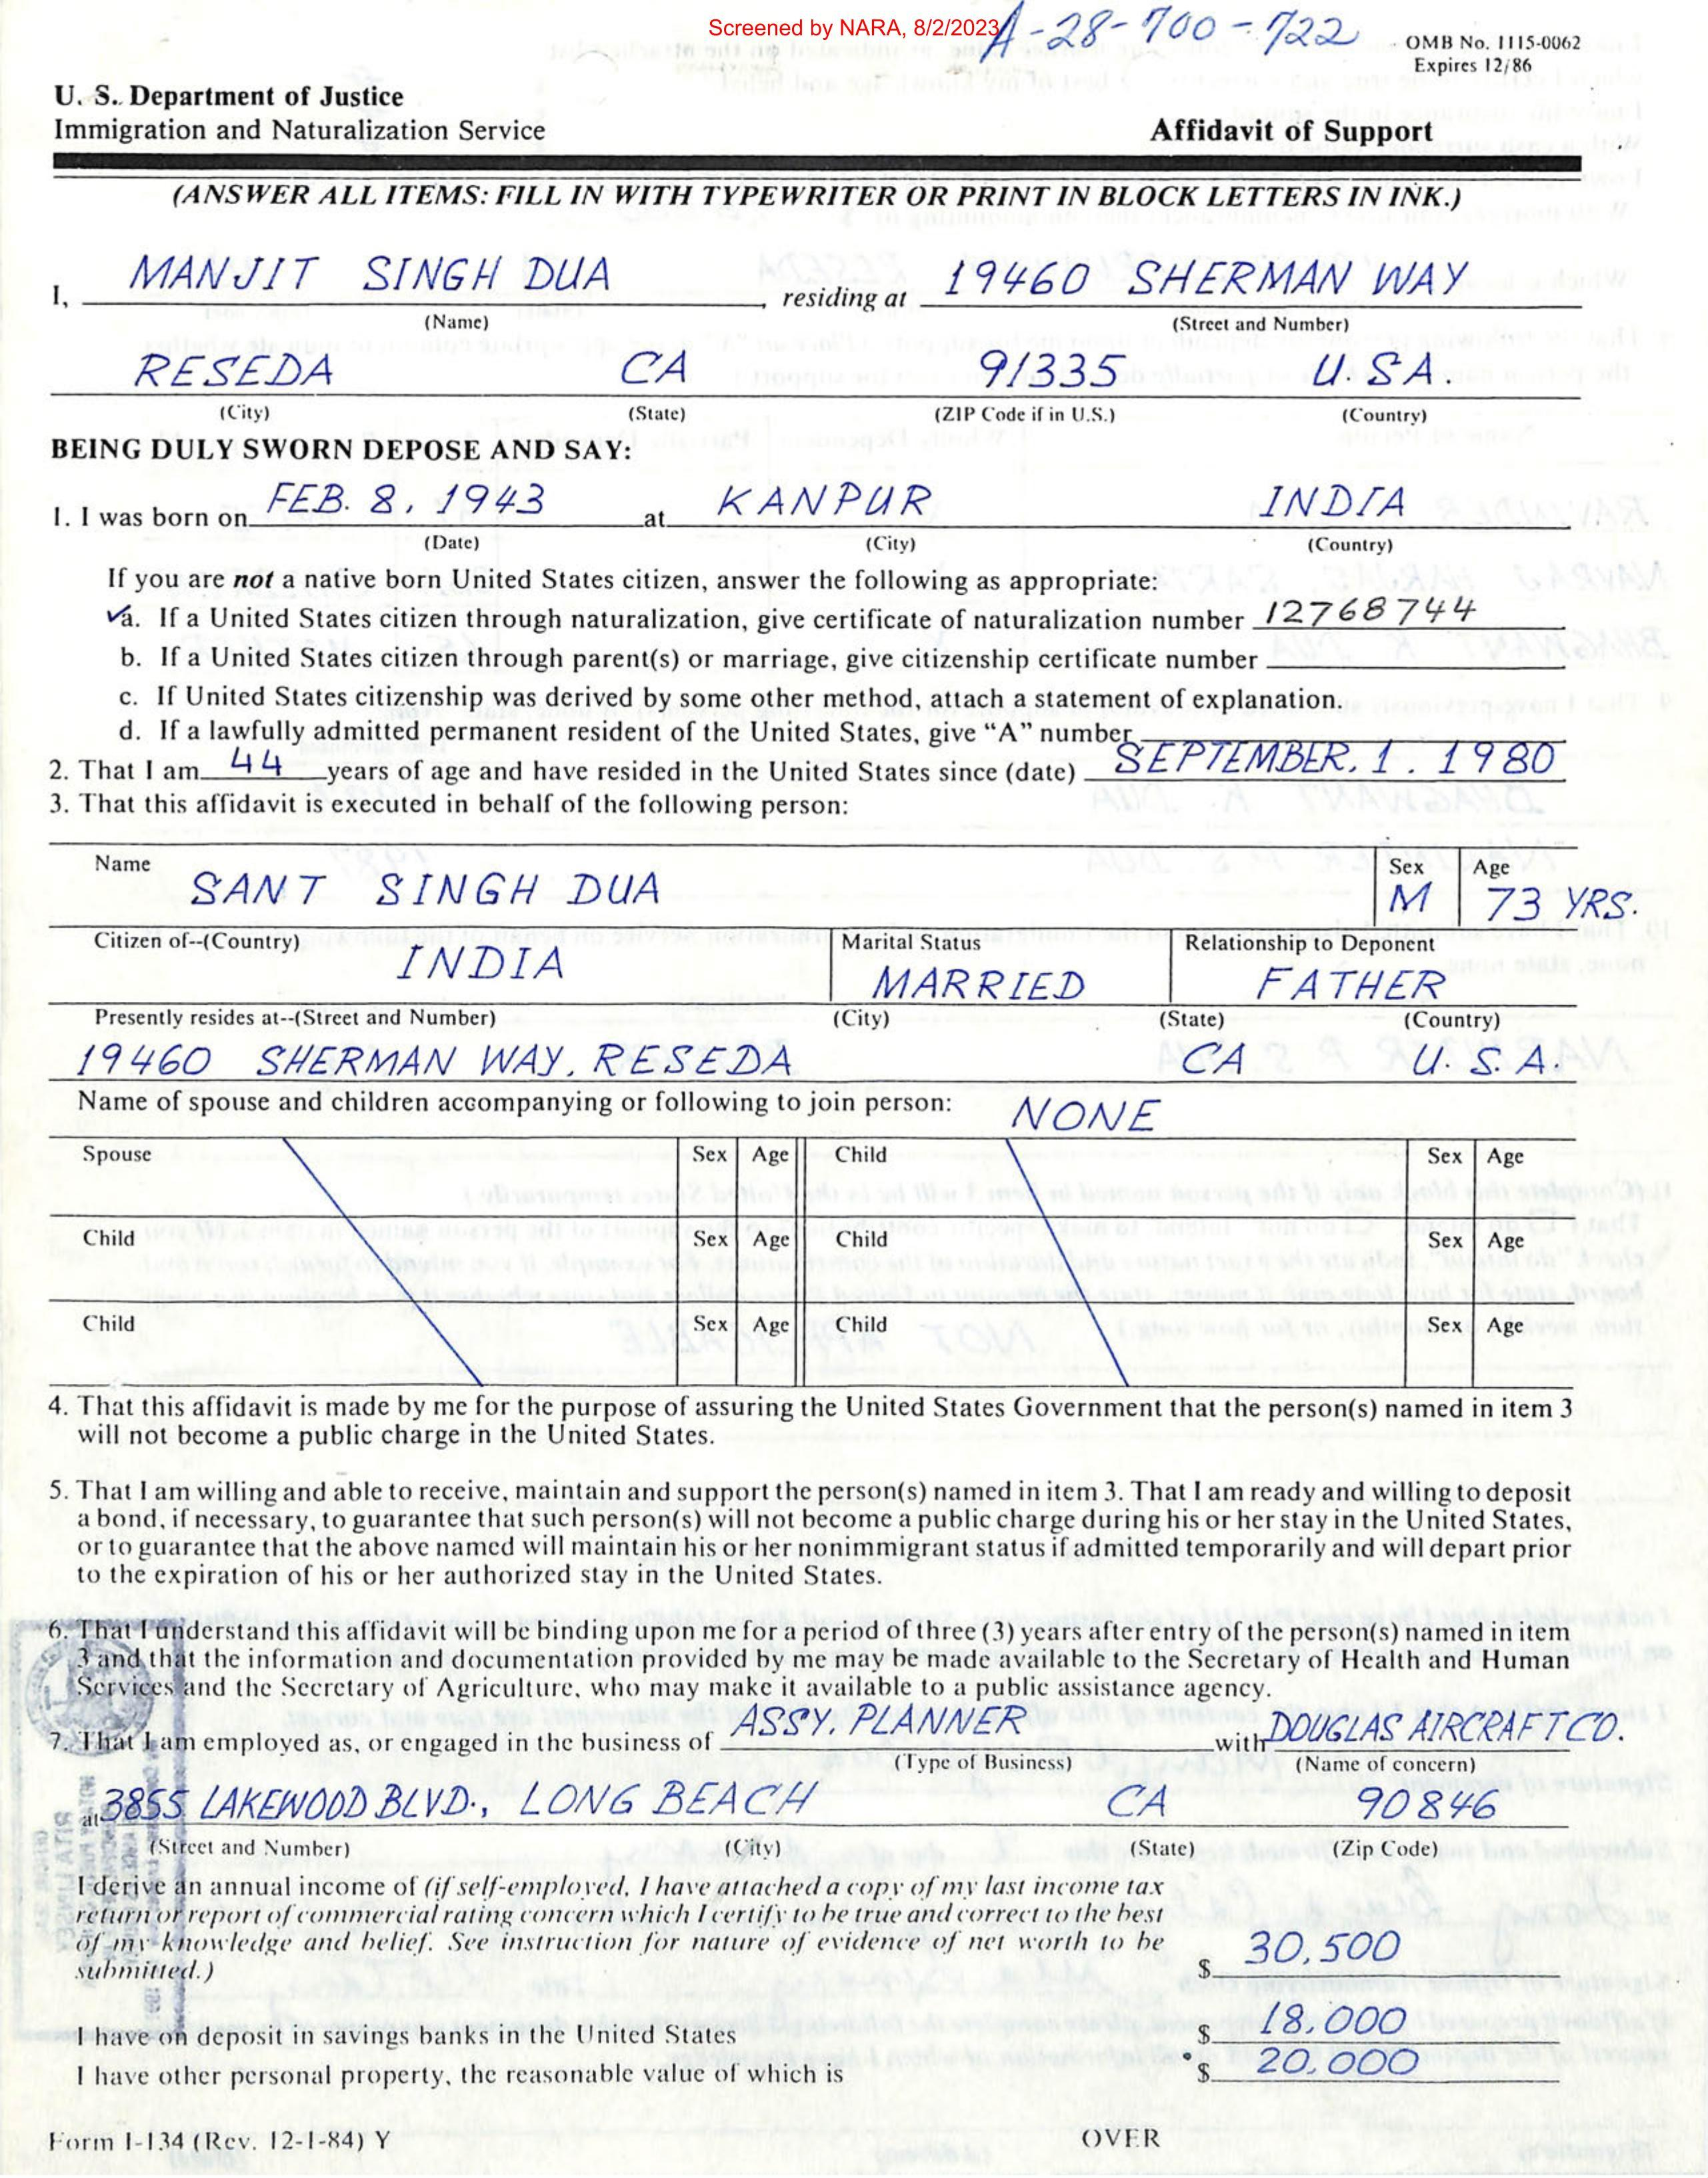 Screened by NARA, 8/2/2023
A-28-700-722
OMB No. 1115-0062
Expires 12/86
U. S. Department of Justice
Immigration and Naturalization Service
Affidavit of Support
(ANSWER ALL ITEMS: FILL IN WITH TYPEWRITER OR PRINT IN BLOCK LETTERS IN INK.)
I, MANJIT SINGH DUA, residing at 19460 SHERMAN WAY
(Name) (Street and Number)
RESEDA CA 91335 U.S.A.
(City) (State) (ZIP Code if in U.S.) (Country)
BEING DULY SWORN DEPOSE AND SAY:
1. I was born on FEB. 8, 1943 at KANPUR INDIA
(Date) (City) (Country)
If you are not a native born United States citizen, answer the following as appropriate:
✓a. If a United States citizen through naturalization, give certificate of naturalization number 12768744
b. If a United States citizen through parent(s) or marriage, give citizenship certificate number
c. If United States citizenship was derived by some other method, attach a statement of explanation.
d. If a lawfully admitted permanent resident of the United States, give “A” number
2. That I am 44 years of age and have resided in the United States since (date) SEPTEMBER. 1. 1980
3. That this affidavit is executed in behalf of the following person:
Name Sex Age
SANT SINGH DUA M 73 YRS.
Citizen of--(Country) Marital Status Relationship to Deponent
INDIA MARRIED FATHER
Presently resides at--(Street and Number) (City) (State) (Country)
19460 SHERMAN WAY, RESEDA CA U.S.A.
Name of spouse and children accompanying or following to join person: NONE
Spouse Sex Age Child Sex Age
Child Sex Age Child Sex Age
Child Sex Age Child Sex Age
4. That this affidavit is made by me for the purpose of assuring the United States Government that the person(s) named in item 3
will not become a public charge in the United States.
5. That I am willing and able to receive, maintain and support the person(s) named in item 3. That I am ready and willing to deposit
a bond, if necessary, to guarantee that such person(s) will not become a public charge during his or her stay in the United States,
or to guarantee that the above named will maintain his or her nonimmigrant status if admitted temporarily and will depart prior
to the expiration of his or her authorized stay in the United States.
6. That I understand this affidavit will be binding upon me for a period of three (3) years after entry of the person(s) named in item
3 and that the information and documentation provided by me may be made available to the Secretary of Health and Human
Services and the Secretary of Agriculture, who may make it available to a public assistance agency.
7. That I am employed as, or engaged in the business of ASSY. PLANNER with DOUGLAS AIRCRAFT CO.
(Type of Business) (Name of concern)
at 3855 LAKEWOOD BLVD., LONG BEACH CA 90846
(Street and Number) (City) (State) (Zip Code)
I derive an annual income of (if self-employed, I have attached a copy of my last income tax
return or report of commercial rating concern which I certify to be true and correct to the best
of my knowledge and belief. See instruction for nature of evidence of net worth to be
submitted.) $ 30,500
I have on deposit in savings banks in the United States $ 18,000
I have other personal property, the reasonable value of which is $ 20,000
Form I-134 (Rev. 12-1-84) Y OVER